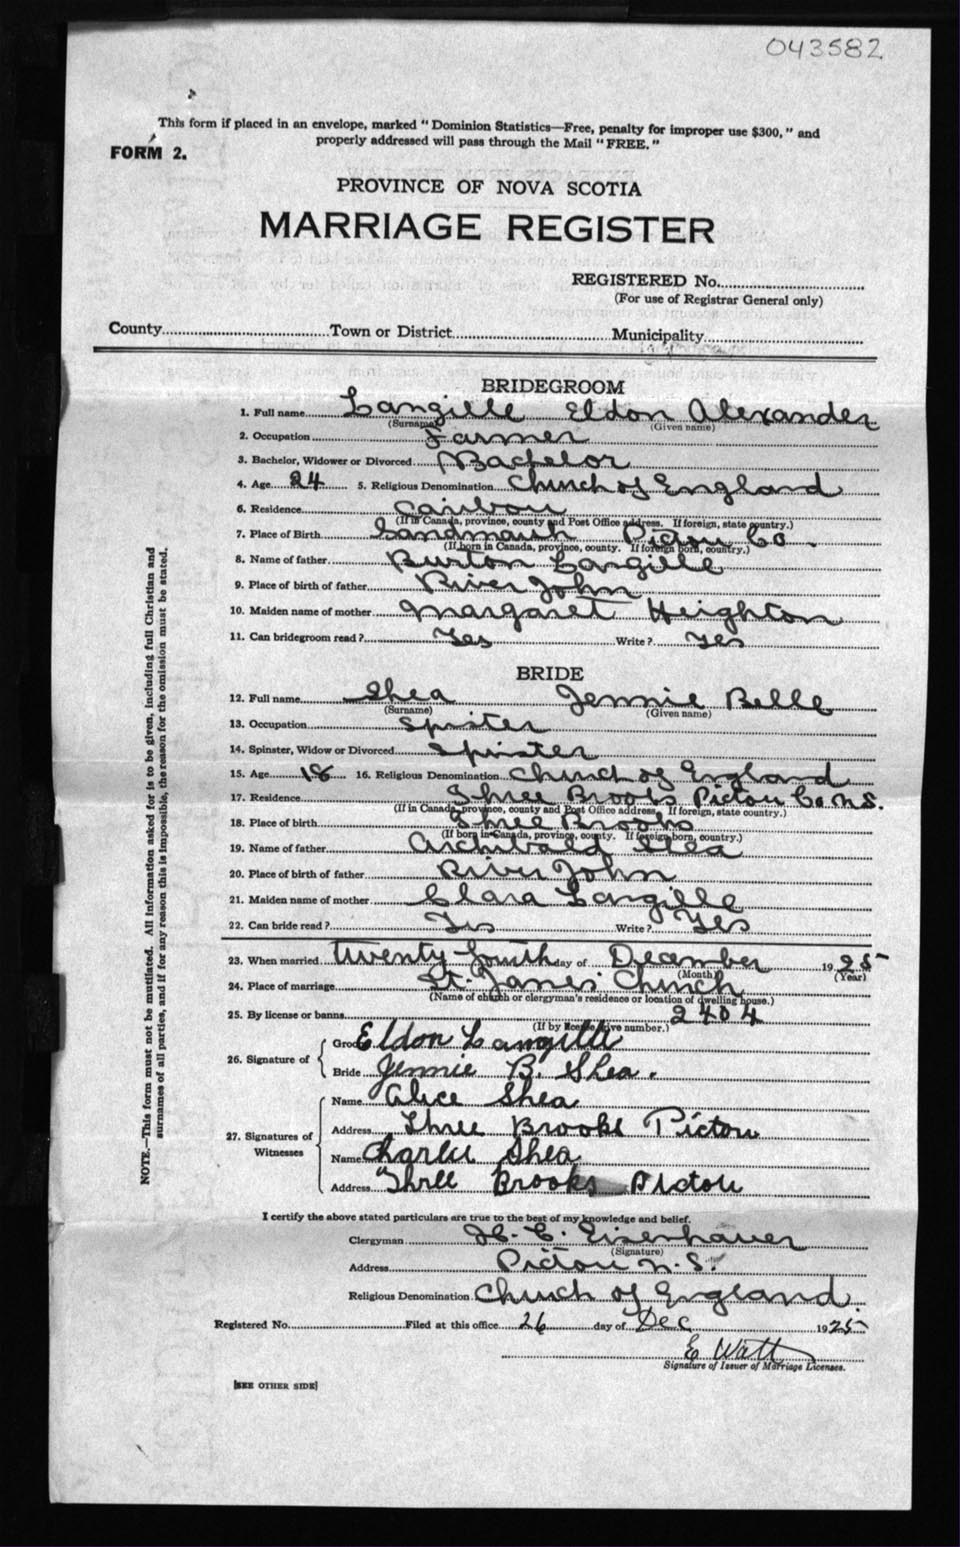 043582
This form if placed in an envelope, marked "Dominion Statistics—Free, penalty for improper use $300," and
properly addressed will pass through the Mail "FREE."
FORM 2.
PROVINCE OF NOVA SCOTIA
MARRIAGE REGISTER
REGISTERED No.
(For use of Registrar General only)
County Town or District Municipality
BRIDEGROOM
1. Full name Langille Eldon Alexander
(Surname) (Given name)
2. Occupation Farmer
3. Bachelor, Widower or Divorced Bachelor
4. Age 24 5. Religious Denomination Church of England
6. Residence Caribou
(If in Canada, province, county and Post Office address. If foreign, state country.)
7. Place of Birth Pictou Co.
(If born in Canada, province, county. If foreign born, country.)
8. Name of father Burton Langille
9. Place of birth of father River John
10. Maiden name of mother Margaret Heighton
11. Can bridegroom read? Yes Write? Yes
BRIDE
12. Full name Shea Jennie Belle
(Surname) (Given name)
13. Occupation Spister
14. Spinster, Widow or Divorced Spinster
15. Age 18 16. Religious Denomination Church of England
17. Residence Three Brooks Pictou Co N.S.
(If in Canada, province, county and Post Office address. If foreign, state country.)
18. Place of birth Three Brooks
(If born in Canada, province, county. If foreign born, country.)
19. Name of father Archibald Shea
20. Place of birth of father River John
21. Maiden name of mother Clara Langille
22. Can bride read? Yes Write? Yes
23. When married twenty fourth day of December 1925
(Month) (Year)
24. Place of marriage St. James Church
(Name of church or clergyman's residence or location of dwelling house.)
25. By license or banns 2404
(If by license give number.)
26. Signature of
Groom Eldon Langille
Bride Jennie B. Shea.
27. Signatures of Witnesses
Name Alice Shea
Address Three Brooks Pictou
Name Charlie Shea
Address Three Brooks Pictou
I certify the above stated particulars are true to the best of my knowledge and belief.
Clergyman H. C. Eisenhauer
(Signature)
Address Pictou N.S.
Religious Denomination Church of England.
Registered No. Filed at this office 26 day of Dec 1925
E Watt
Signature of Issuer of Marriage Licenses.
[SEE OTHER SIDE]
NOTE.—This form must not be mutilated. All information asked for is to be given, including full Christian and
surnames of all parties, and if for any reason this is impossible, the reason for the omission must be stated.